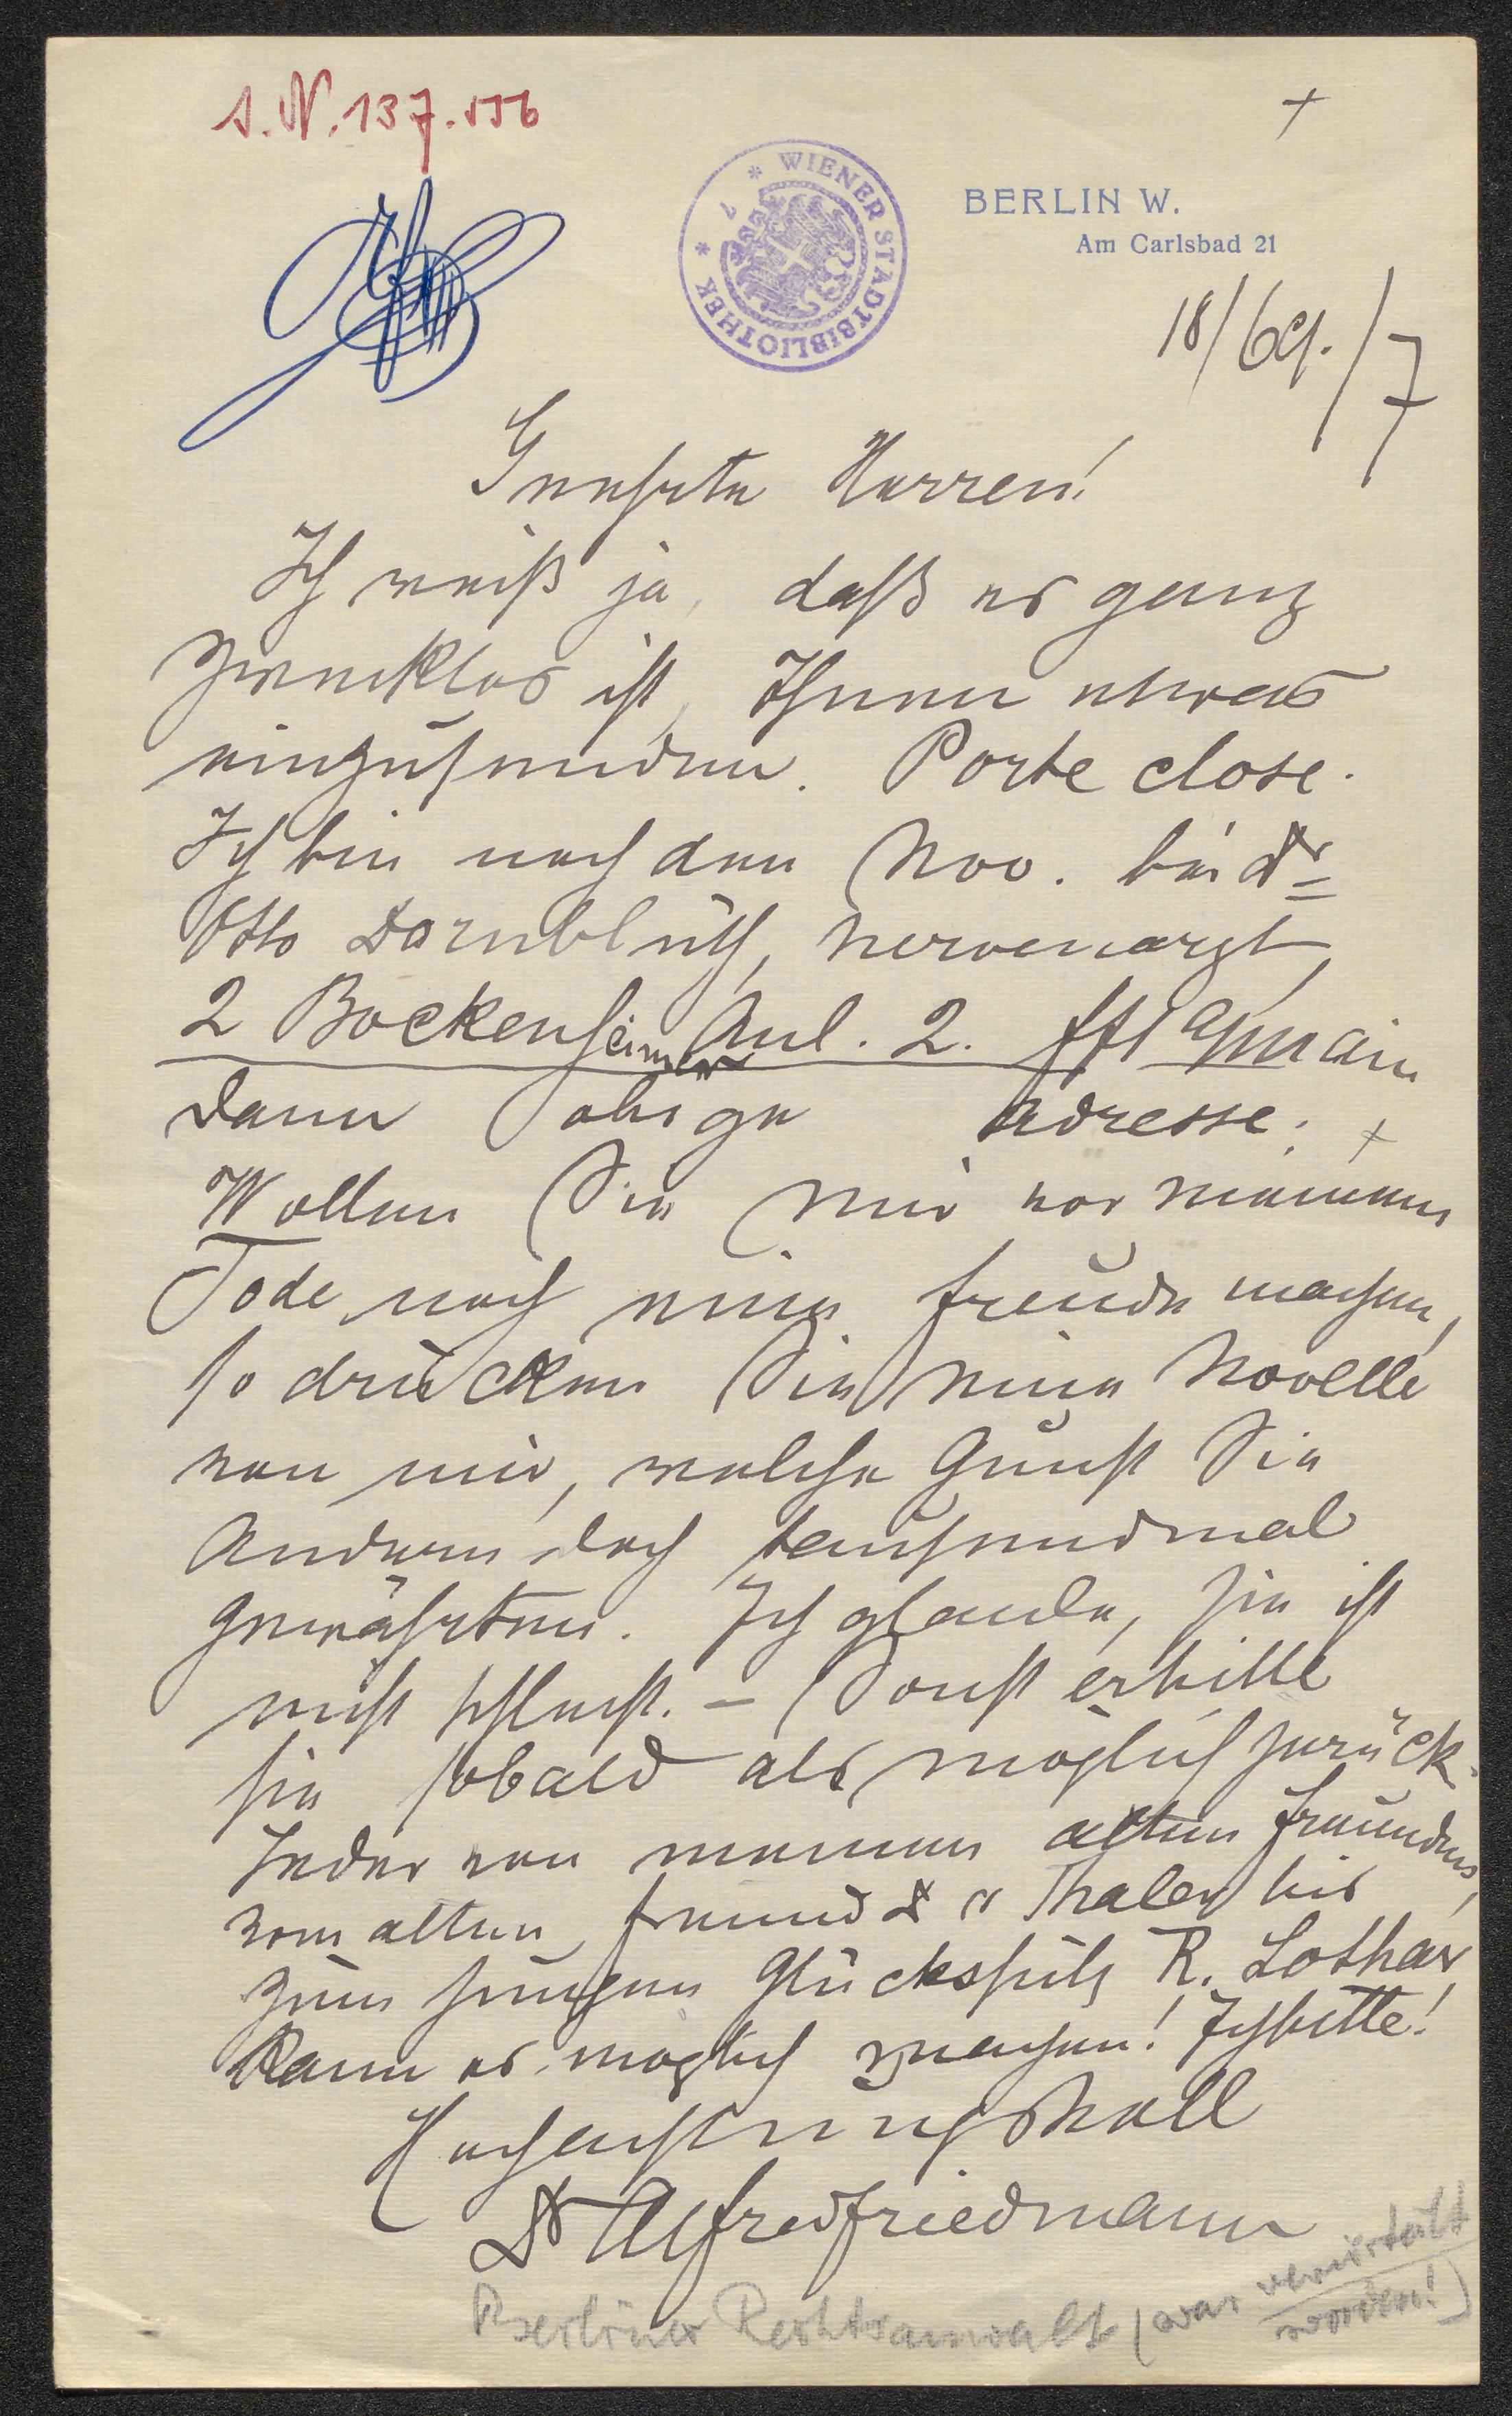 I.N. 137.556
+
WIENER STADTBIBLIOTHEK
BERLIN W.
Am Carlsbad 21
18/ /7
Geehrte Herren!
Ich weiß ja, daß es ganz
zwecklos ist, Ihnen etwas
einzusenden. Porte close.
Ich bin noch den Nov. bei Dr
Otto Dornblüth, Nervenarzt,
2 Bockenheimer Anl. 2. Fft a/Main
dann obige Adresse. +
Wollen Sie mir vor meinem
Tode noch eine Freude machen,
so drucken Sie eine Novelle
von mir, welche Gunst Sie
Andern doch tausendmal
gewährten. Ich glaube, sie ist
nicht schlecht. – Sonst erbitte
sie sobald als möglich zurück.
Jeder von meinen alten Freunden,
vom alten Freund v Thaler bis
zum jungen Glückspilz R. Lothar
kann es möglich machen! Ich bitte!
Hochachtungsvoll
Dr Alfred Friedmann
Berliner Rechtsanwalt (war verurteilt
worden!)